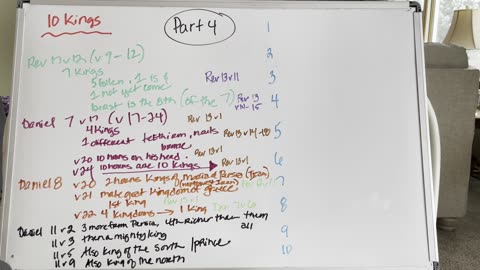 10 Kings
Part 4
Rev 17 v 12 (v 9-12)
7 Kings
5 fallen, 1 is &
1 not yet come
Rev 13 v 11
beast is the 8th (of the 7)
Rev 13
Daniel 7 v 17 (v 17-24)
Rev 13 v 1
4 Kings
1 different teeth iron, nails
bronze
v 20 10 horns on his head.
Rev 13 v 1
v 24 10 horns are 10 Kings
Rev 13 v 1
Daniel 8 v 20 2 horns Kings of Media & Persia (Iran)
v 21 male goat Kingdom of Greece
1st King
v 22 4 Kingdoms → 1 King
Daniel 11 v 2 3 more from Persia, 4th Richer than them
all
11 v 3 then a mighty King
11 v 5 Also King of the South /prince
11 v 9 Also King of the north
1
2
3
4
5
6
7
8
9
10